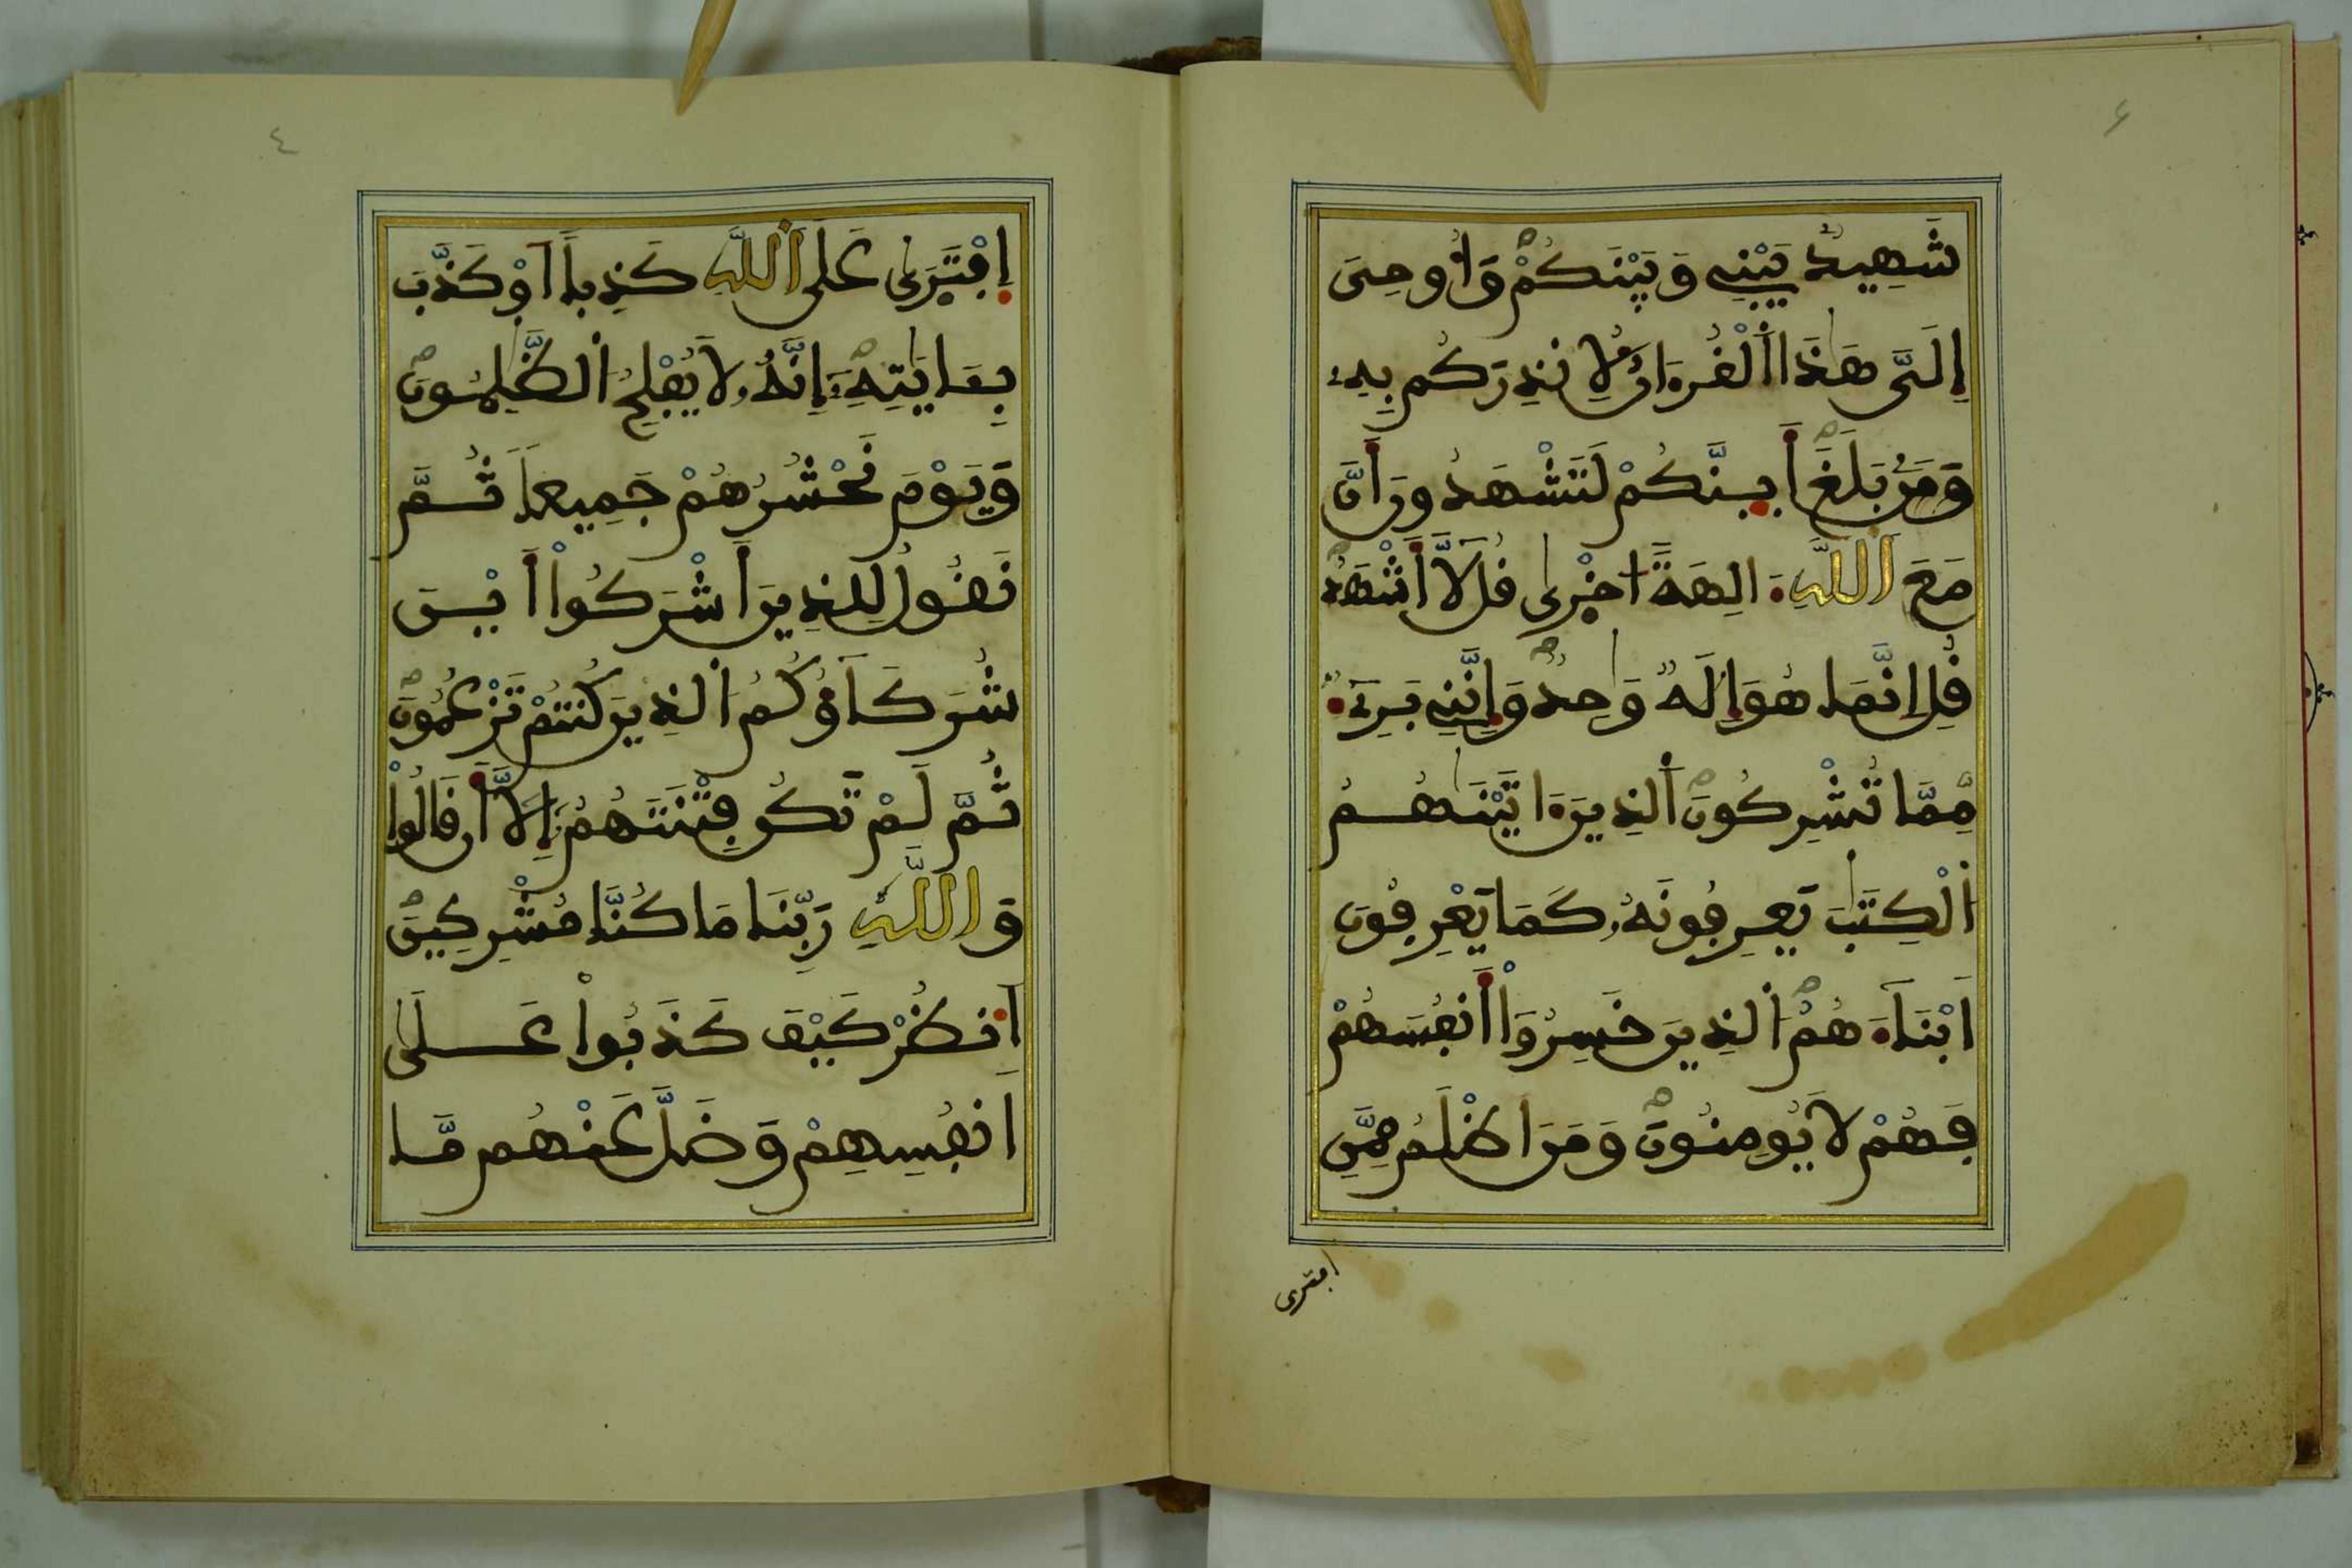 شَهِيدٌ بَيْنِي وَبَيْنَكُمْ وَأُوحِيَ
إِلَيَّ هَذَا اَلْقُرْءَانُ لِأُنذِرَكُم بِهِۦ
وَمَنۢ بَلَغَ أَئِنَّكُمْ لَتَشْهَدُونَ أَنَّ
مَعَ اَللَّهِ ءَالِهَةً اخْرٜىٰ قُل لَّا أَشْهَدُ
قُلِ اِنَّمَا هُوَ إِلَهٌ وَاحِدٌ وَإِنَّنِي بَرِيٓءٌ
مِّمَّا تُشْرِكُونَ اَلذِينَ ءَاتَيْنَٰهُمُ
اَلْكِتَٰبَ يَعْرِفُونَهُۥ كَمَا يَعْرِفُونَ
أَبْنَآءَهُمُ اَلذِينَ خَسِرُوٓاْ أَنفُسَهُمْ
فَهُمْ لَا يُومِنُونَ وَمَنَ اَظْلَمُ مِمَّنِ
افترى
٤
اِفْتَرٜىٰ عَلَى اَللَّهِ كَذِباً اَوْ كَذَّبَ
بِـَٔايَٰتِهِۦٓ إِنَّهُۥ لَا يُفْلِحُ اُلظَّٰلِمُونَ
وَيَوْمَ نَحْشُرُهُمْ جَمِيعاً ثُمَّ
نَقُولُ لِلذِينَ أَشْرَكُوٓاْ أَيْنَ
شُرَكَآؤُكُمُ اُلذِينَ كُنتُمْ تَزْعُمُونَ
ثُمَّ لَمْ تَكُن فِتْنَتَهُمُۥٓ إِلَّآ أَن قَالُواْ
وَاللَّهِ رَبِّنَا مَا كُنَّا مُشْرِكِينَ
اَنظُرْ كَيْفَ كَذَبُواْ عَلَىٰٓ
أَنفُسِهِمْ وَضَلَّ عَنْهُم مَّا